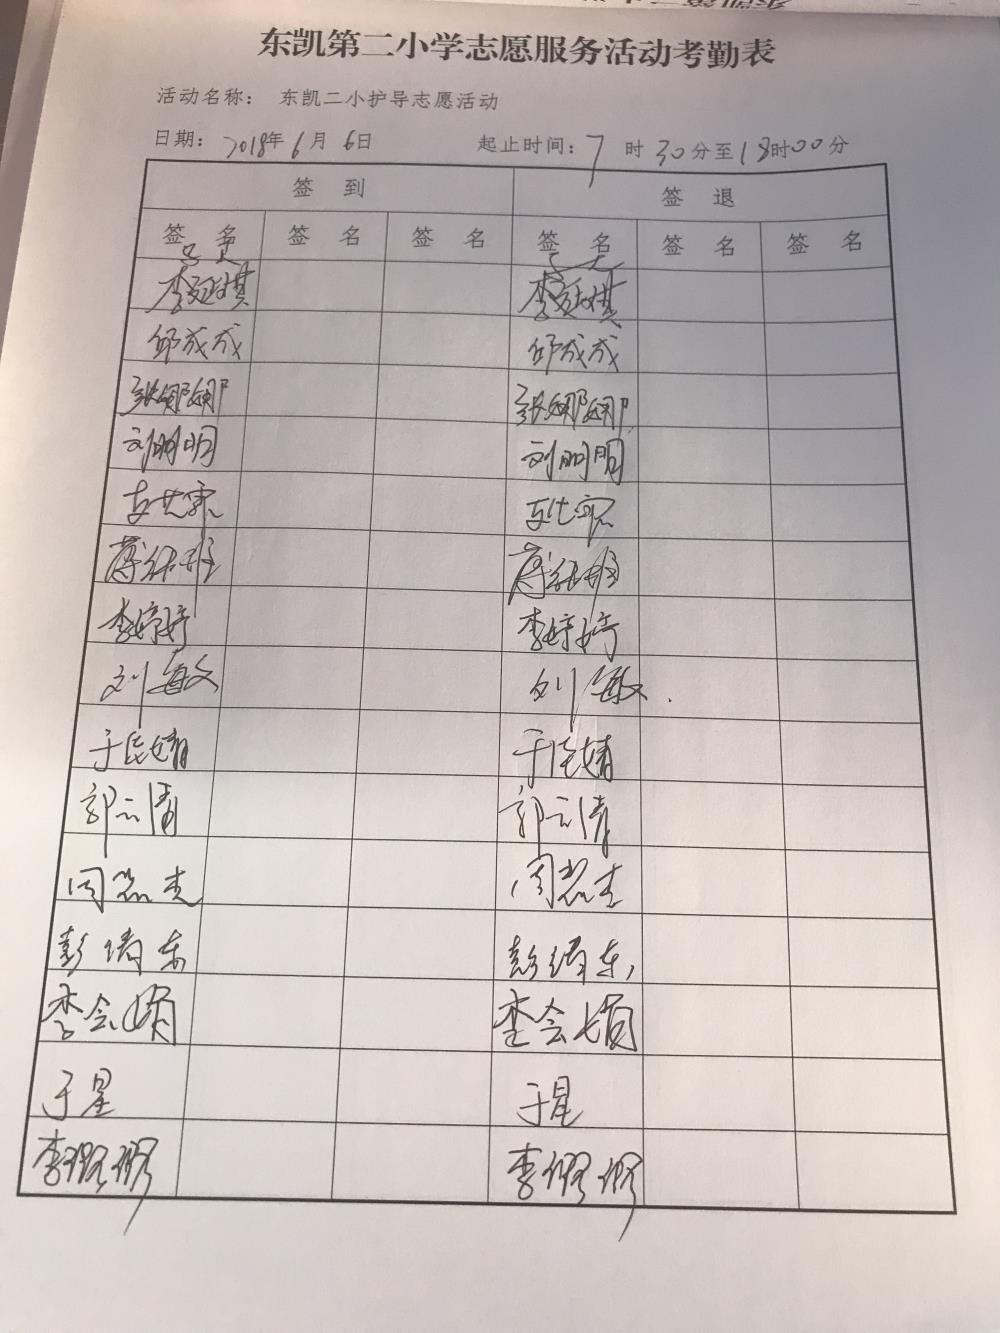 东凯第二小学志愿服务活动考勤表
活动名称： 东凯二小护导志愿活动
日期：2018年6月6日 起止时间：7时30分至18时00分
签 到 签 退
签 名 签 名 签 名 签 名 签 名 签 名
李廷棋 李廷棋
邱成成 邱成成
张娜娜 张娜娜
刘明明 刘明明
李婷婷 李婷婷
刘敏 刘敏
于佳婧 于佳婧
郭云清 郭云清
彭绪东 彭绪东
李会娟 李会娟
于星 于星
李 李